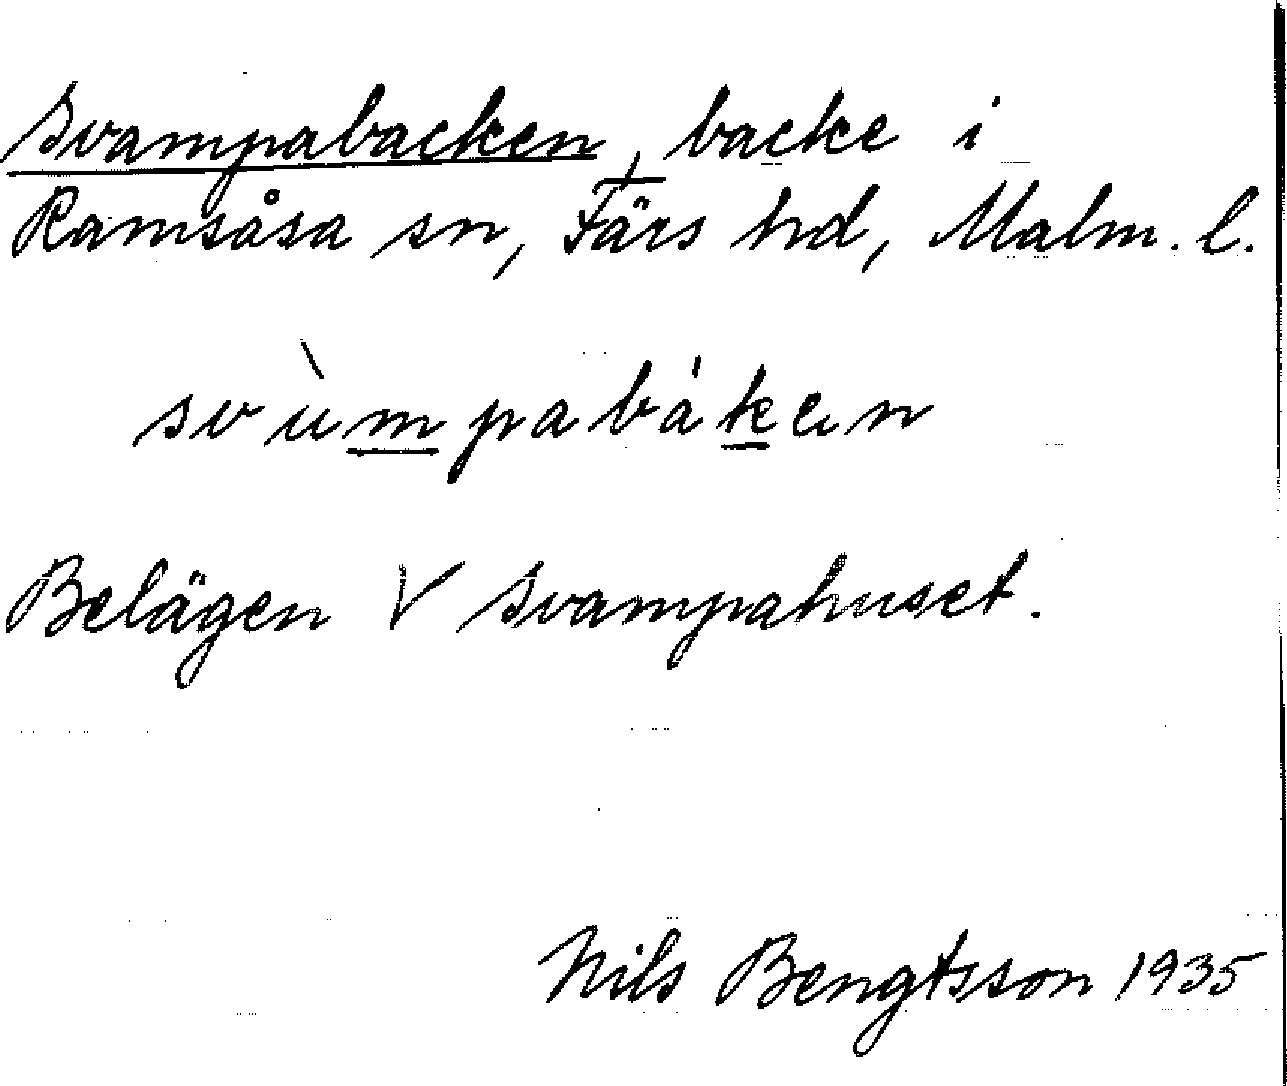 Svampabacken, backe i
Ramsåsa sn, Färs hd, Malm. l.
svùmpabáken
Belägen V Svampahuset.
Nils Bengtsson 1935